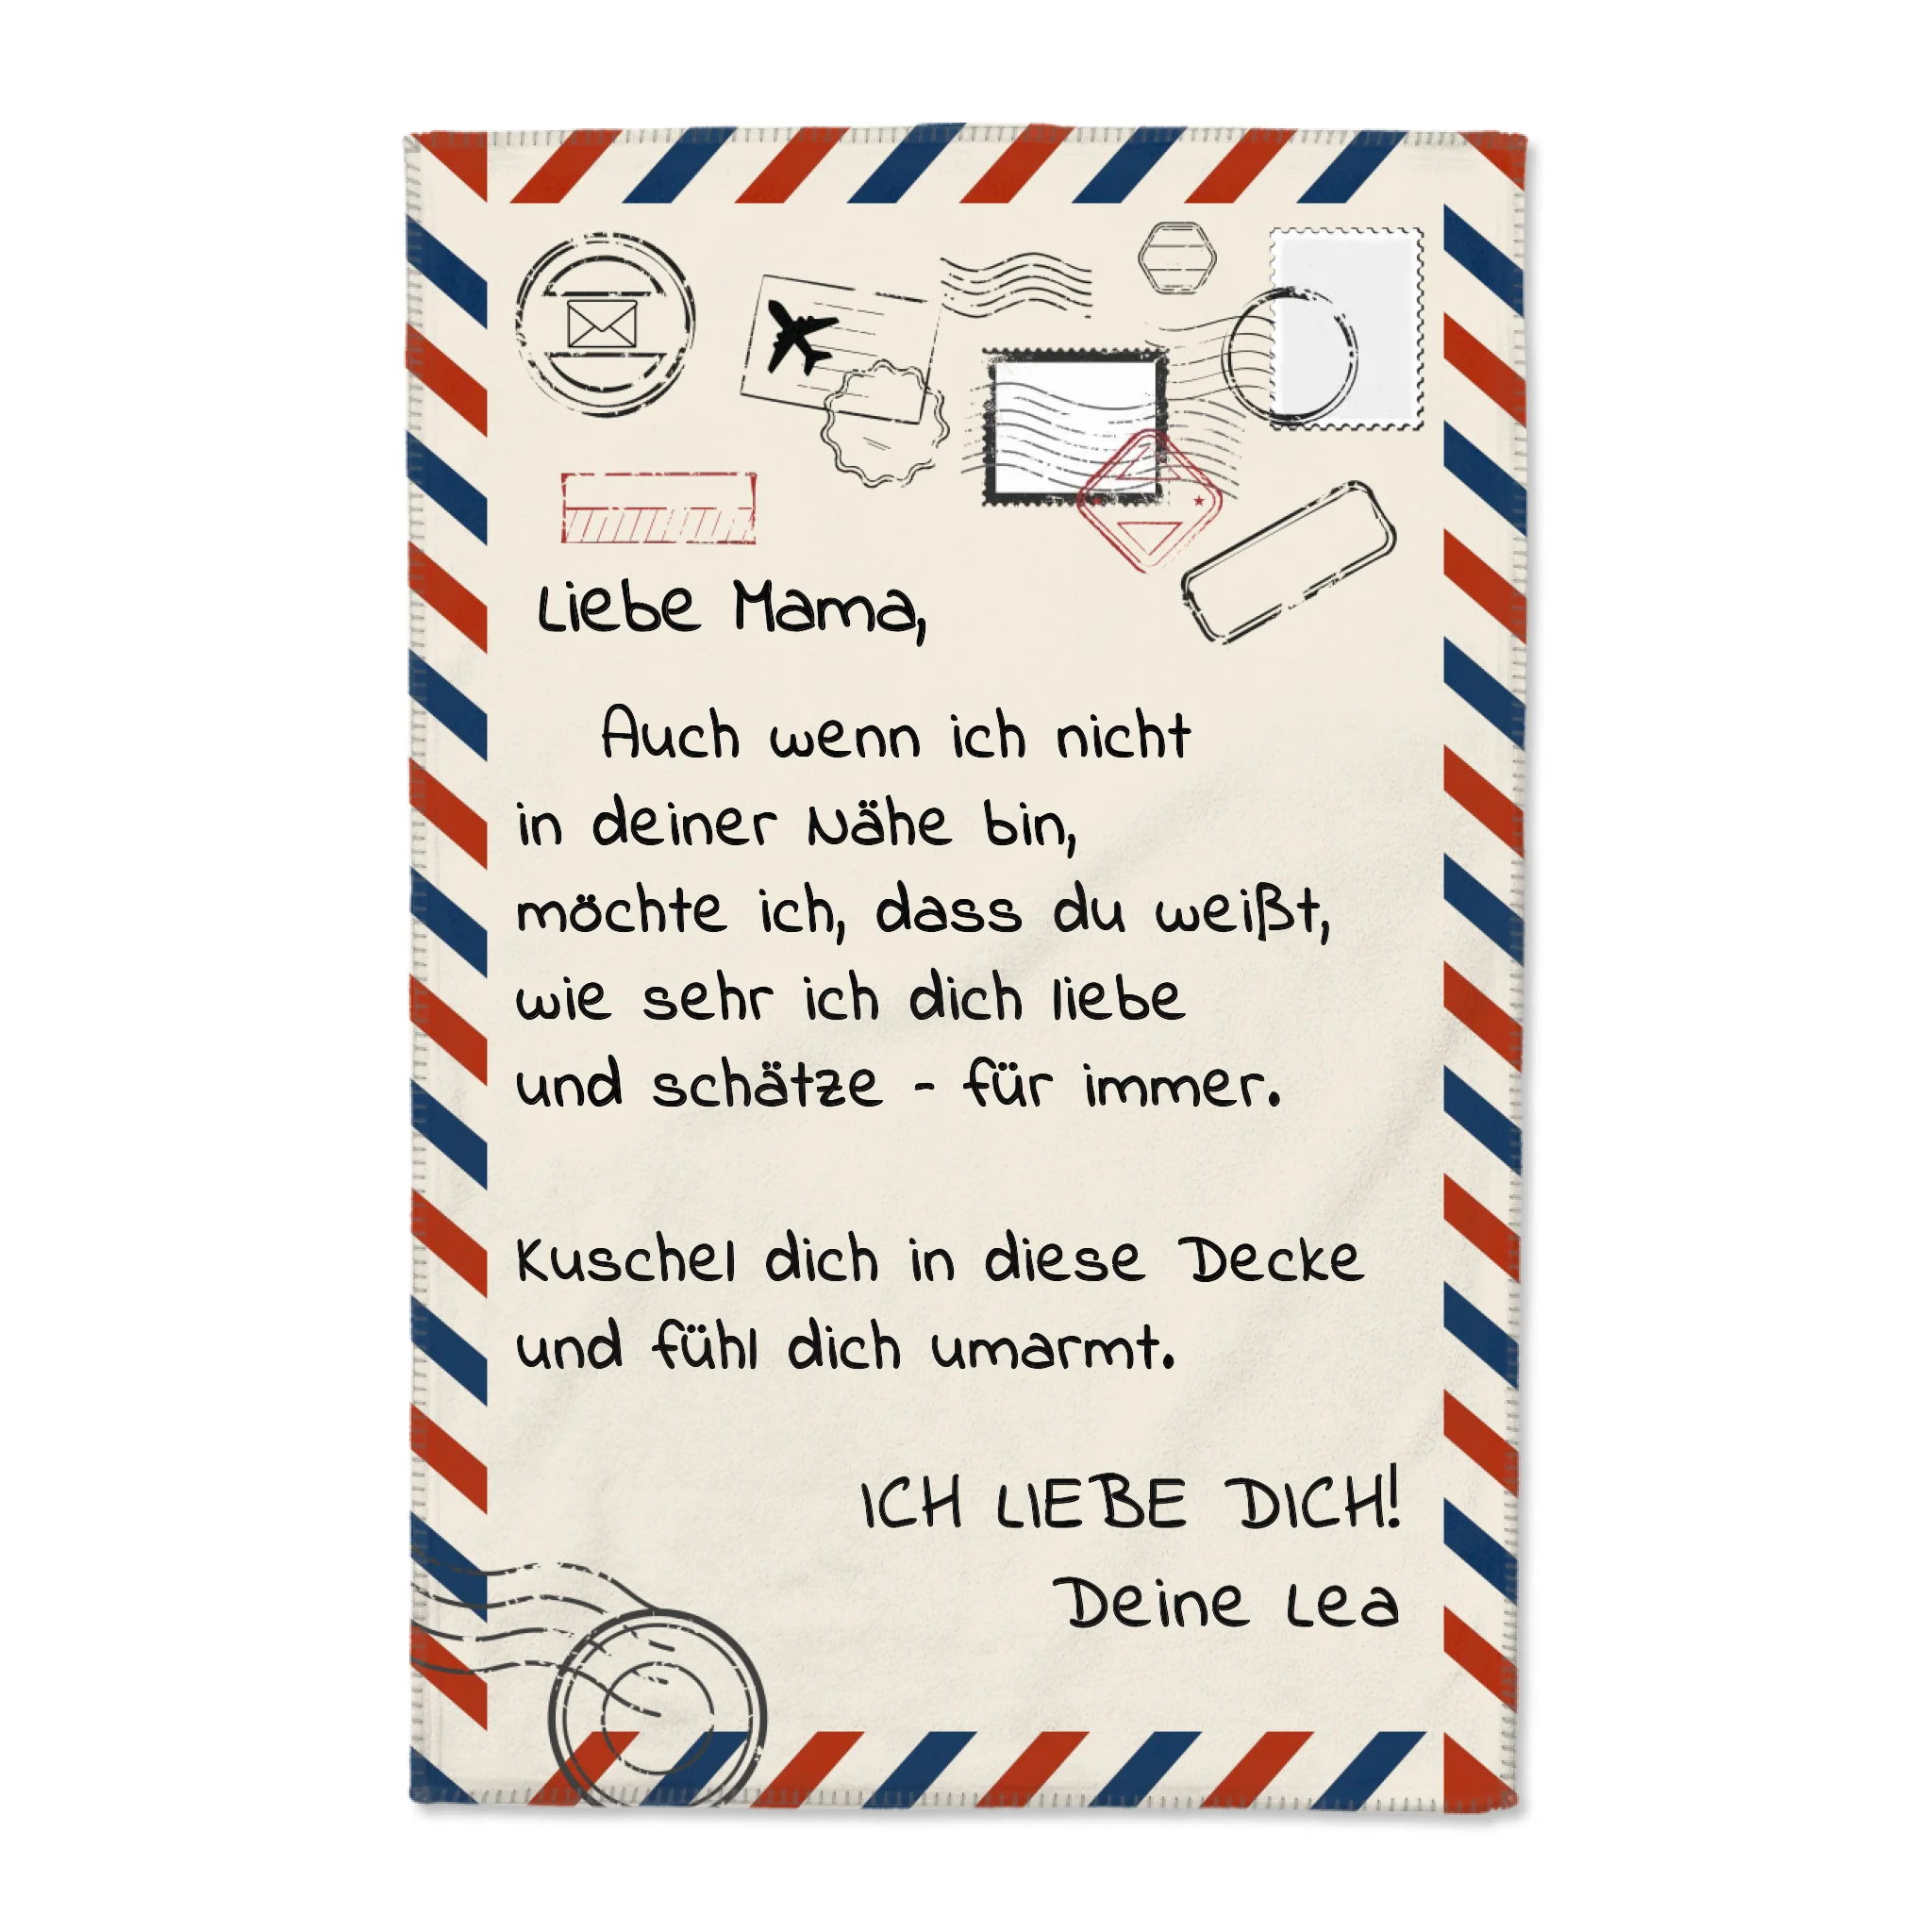 Liebe Mama,
Auch wenn ich nicht
in deiner Nähe bin,
möchte ich, dass du weißt,
wie sehr ich dich liebe
und schätze - für immer.
Kuschel dich in diese Decke
und fühl dich umarmt.
ICH LIEBE DICH!
Deine Lea